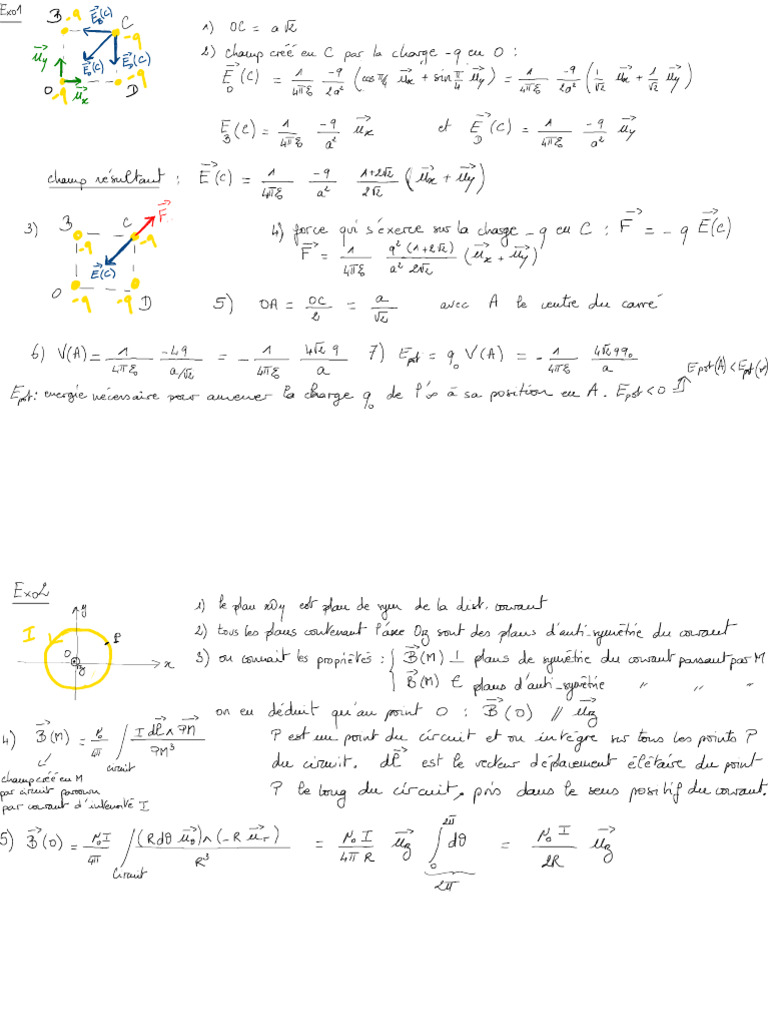 Exo1
B -q E⃗_B(C) C -q
E⃗_O(C) E⃗_D(C)
u⃗y
O -q u⃗x -q D
1) OC = a√2
2) champ créé en C par la charge -q en O :
E⃗_O(C) = 1/4πε₀ -q/2a² (cos π/4 u⃗x + sin π/4 u⃗y) = 1/4πε₀ -q/2a² (1/√2 u⃗x + 1/√2 u⃗y)
E_B(C) = 1/4πε₀ -q/a² u⃗x et E⃗_D(C) = 1/4πε₀ -q/a² u⃗y
champ résultant : E⃗(C) = 1/4πε₀ -q/a² 1+2√2/2√2 (u⃗x + u⃗y)
3) B -q C -q F⃗
E⃗(C)
O -q -q D
4) force qui s'exerce sur la charge -q en C : F⃗ = -q E⃗(C)
F⃗ = 1/4πε₀ q²(1+2√2)/a² 2√2 (u⃗x + u⃗y)
5) OA = OC/2 = a/√2 avec A le centre du carré
6) V(A) = 1/4πε₀ -4q/a/√2 = - 1/4πε₀ 4√2 q/a 7) Epot = q₀ V(A) = - 1/4πε₀ 4√2 qq₀/a
Epot(A) < Epot(∞)
Epot : énergie nécessaire pour amener la charge q₀ de l'∞ à sa position en A. Epot < 0 ⇑
Exo2
y
I P
O z x
1) le plan xOy est plan de sym de la dist. courant
2) tous les plans contenant l'axe Oz sont des plans d'anti-symétrie du courant
3) on connait les propriétés : { B⃗(M) ⊥ plans de symétrie du courant passant par M
B⃗(M) ∈ plans d'anti-symétrie " " "
on en déduit qu'au point O : B⃗(O) // u⃗z
4) B⃗(M) = μ₀/4π ∫circuit I dl⃗ ∧ PM⃗/PM³
champ créé en M
par circuit parcouru
par courant d'intensité I
P est un point du circuit et on intègre sur tous les points P
du circuit. dl⃗ est le vecteur déplacement élétaire du point
P le long du circuit, pris dans le sens positif du courant.
5) B⃗(O) = μ₀I/4π ∫circuit (Rdθ u⃗θ)∧(-R u⃗r)/R³ = μ₀ I/4π R u⃗z ∫₀^2π dθ = μ₀ I/2R u⃗z
2π